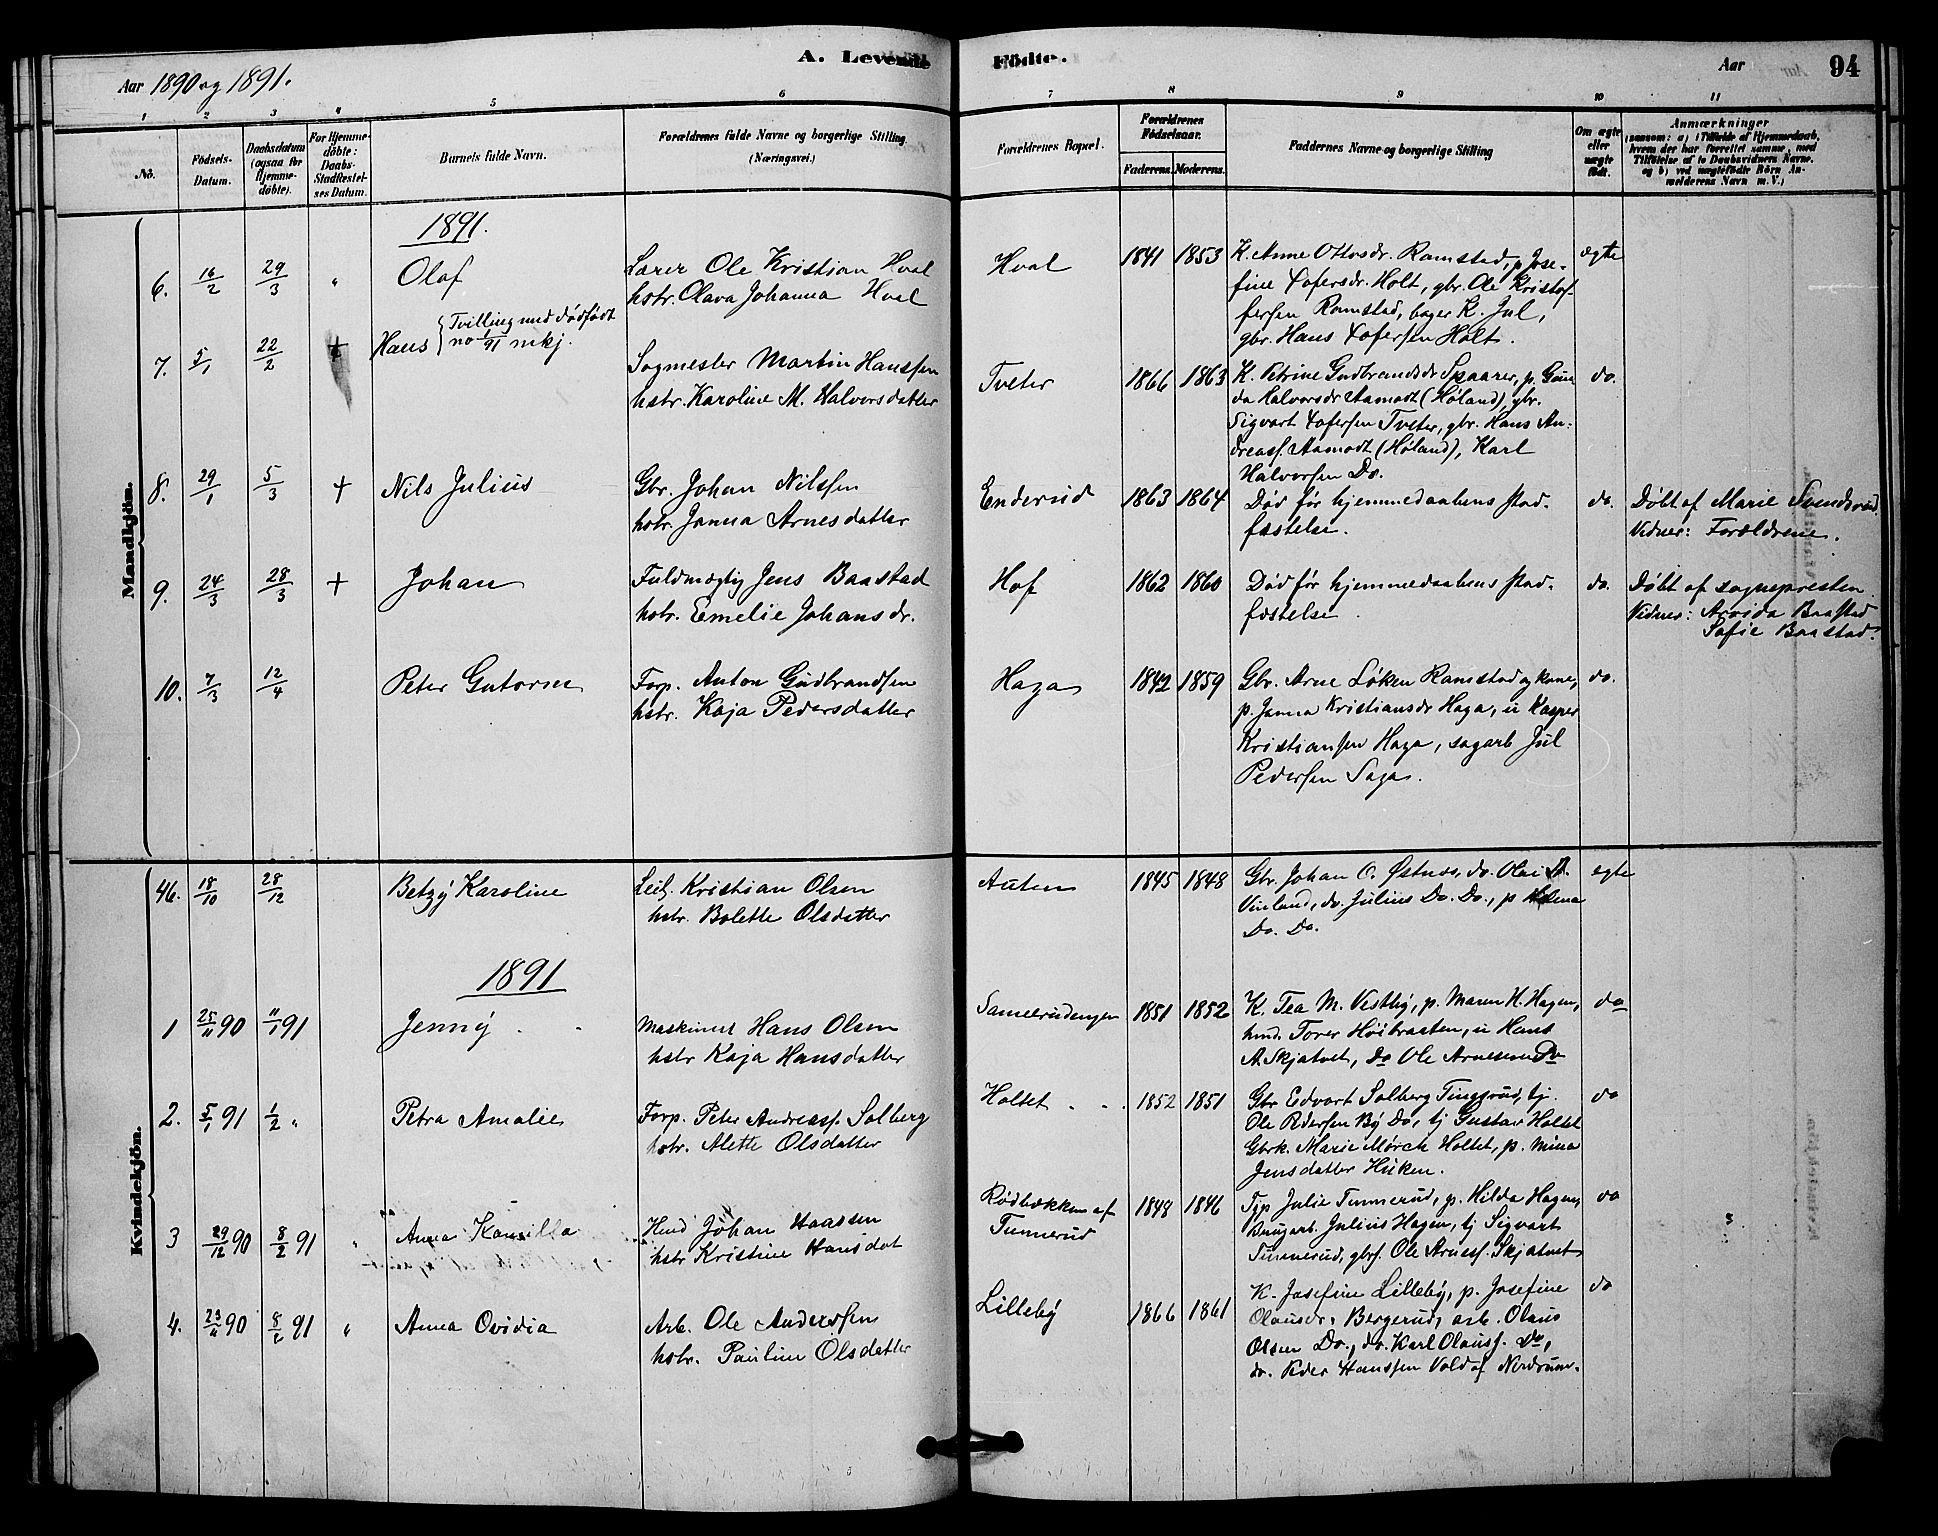 A. Levende Födte.
Aar 1890 og 1891.
Aar
94
1 2 3 4 5 6 7 8 9 10 11
No.
Födsels-Datum.
Daabsdatum (ogsaa for Hjemme-döbte).
For Hjemme-döbte: Daabs-Stadfæstel-ses Datum.
Barnets fulde Navn.
Forældrenes fulde Navne og borgerlige Stilling (Næringsvei.)
Forældrenes Bopæl.
Forældrenes Födselsaar.
Faderens. Moderens.
Faddernes Navne og borgerlige Stilling
Om ægte eller uægte födt.
Anmærkninger
(saasom: a) i Tilfælde af Hjemmedaab, hvem der har forrettet samme, med Tilföielse af to Daabsvidners Navne. og b) ved uægtefödte Börn An-melderens Navn m. V.)
Mandkjön.
1891.
6. 16/2 29/3 " Olaf Lærer Ole Kristian Hval Hval 1841 1853 K. Anne Ottosdr. Ramstad, p. Jose- ægte
hstr. Olava Johanna Hval fine Xofersdr. Holt, gbr. Ole Kristof-
fersen Ramstad, bager K. Jul,
gbr. Hans Xofersen Holt.
7. 5/1 22/2 + Hans { Tvilling med dødfødt
no 1/91 mkj.
Sagmester Martin Hanssen Tveter 1866 1863 K. Petrine Gudbrandsdr Spaarer, p. Gun- do.
hstr. Karoline M. Halvorsdatter da Halvorsdr Aamodt (Høland), gbr.
Sigvart Xofersen Tveter, gbr. Hans An-
dreass. Aamodt (Høland), Karl
Halvorsen Do.
8. 29/1 5/3 + Nils Julius Gbr. Johan Nilssen Enderud 1863 1864 Død før hjemmedaabens stad- do. Døbt af Marie Svendsrud.
hstr. Janna Arnesdatter fæstelse. Vidner: Forældrene.
9. 24/3 28/3 + Johan Fuldmægtig Jens Baastad Hof 1862 1860 Død før hjemmedaabens stad- do. Døbt af sognepresten.
hstr. Emelie Johansdr. fæstelse. Vidner: Arvida Baastad
Sofie Baastad.
10. 7/3 12/4 Peter Gutorm Forp. Anton Gudbrandsen Haga 1842 1859 Gbr. Arne Løken Ramstad og kone, do.
hstr. Kaja Pedersdatter p. Janna Kristiansdr Haga, u Kasper
Kristiansen Haga, sagarb Jul
Pedersen Saga.
Kvindekjön.
46. 18/10 28/12 Betzy Karoline Leil. Kristian Olsen Auten 1845 1848 Gbr. Johan O. Østnes, do. Olai D. egte
hstr. Bolette Olsdatter Vinland, do. Julius Do. Do., p
Do. Do.
1891
1 25/11 90 11/1 91 Jenny Maskinist Hans Olsen Samerudengen 1851 1852 K. Tea M. Vestby, p. Maren H. Hagen, do
hstr Kaja Hansdatter hmd. Torer Høibraaten, u Hans
A. Skjatvet, do Ole Arnesen Do
2. 5/1 91 1/2 " Petra Amalie Forp. Peter Andreass. Solberg Holtet 1852 1851 Gbr Edvart Solberg Tingsrud, tj. do
hstr. Alette Olsdatter Ole Pedersen By Do, tj Gustav Holtet
Gbrk. Marie Mørch Holtet, p. Mina
Jensdatter Huken.
3 29/12 90 8/2 91 " Anna Kamilla Hmd Johan Haassen Rødbækken af 1848 1846 Tjp Julie Tunnerud, p. Hilda Hagen, do
hstr Kristine Hansdat Tunnerud Brugarb. Julius Hagen, tj Sigvart
Tunnerud, gbrs. Ole Arness. Skjatvet
4. 23/11 90 8/2 91 " Anna Ovidia Arb. Ole Anderssen Lilleby 1866 1861 K. Josefine Lilleby, p. Josefine do
hstr. Pauline Olsdatter Olausdr. Bergerud, arb. Olaus
Olsen Do., do. Karl Olauss. Do,
do. Peder Hanssen Vold af Nordrum.